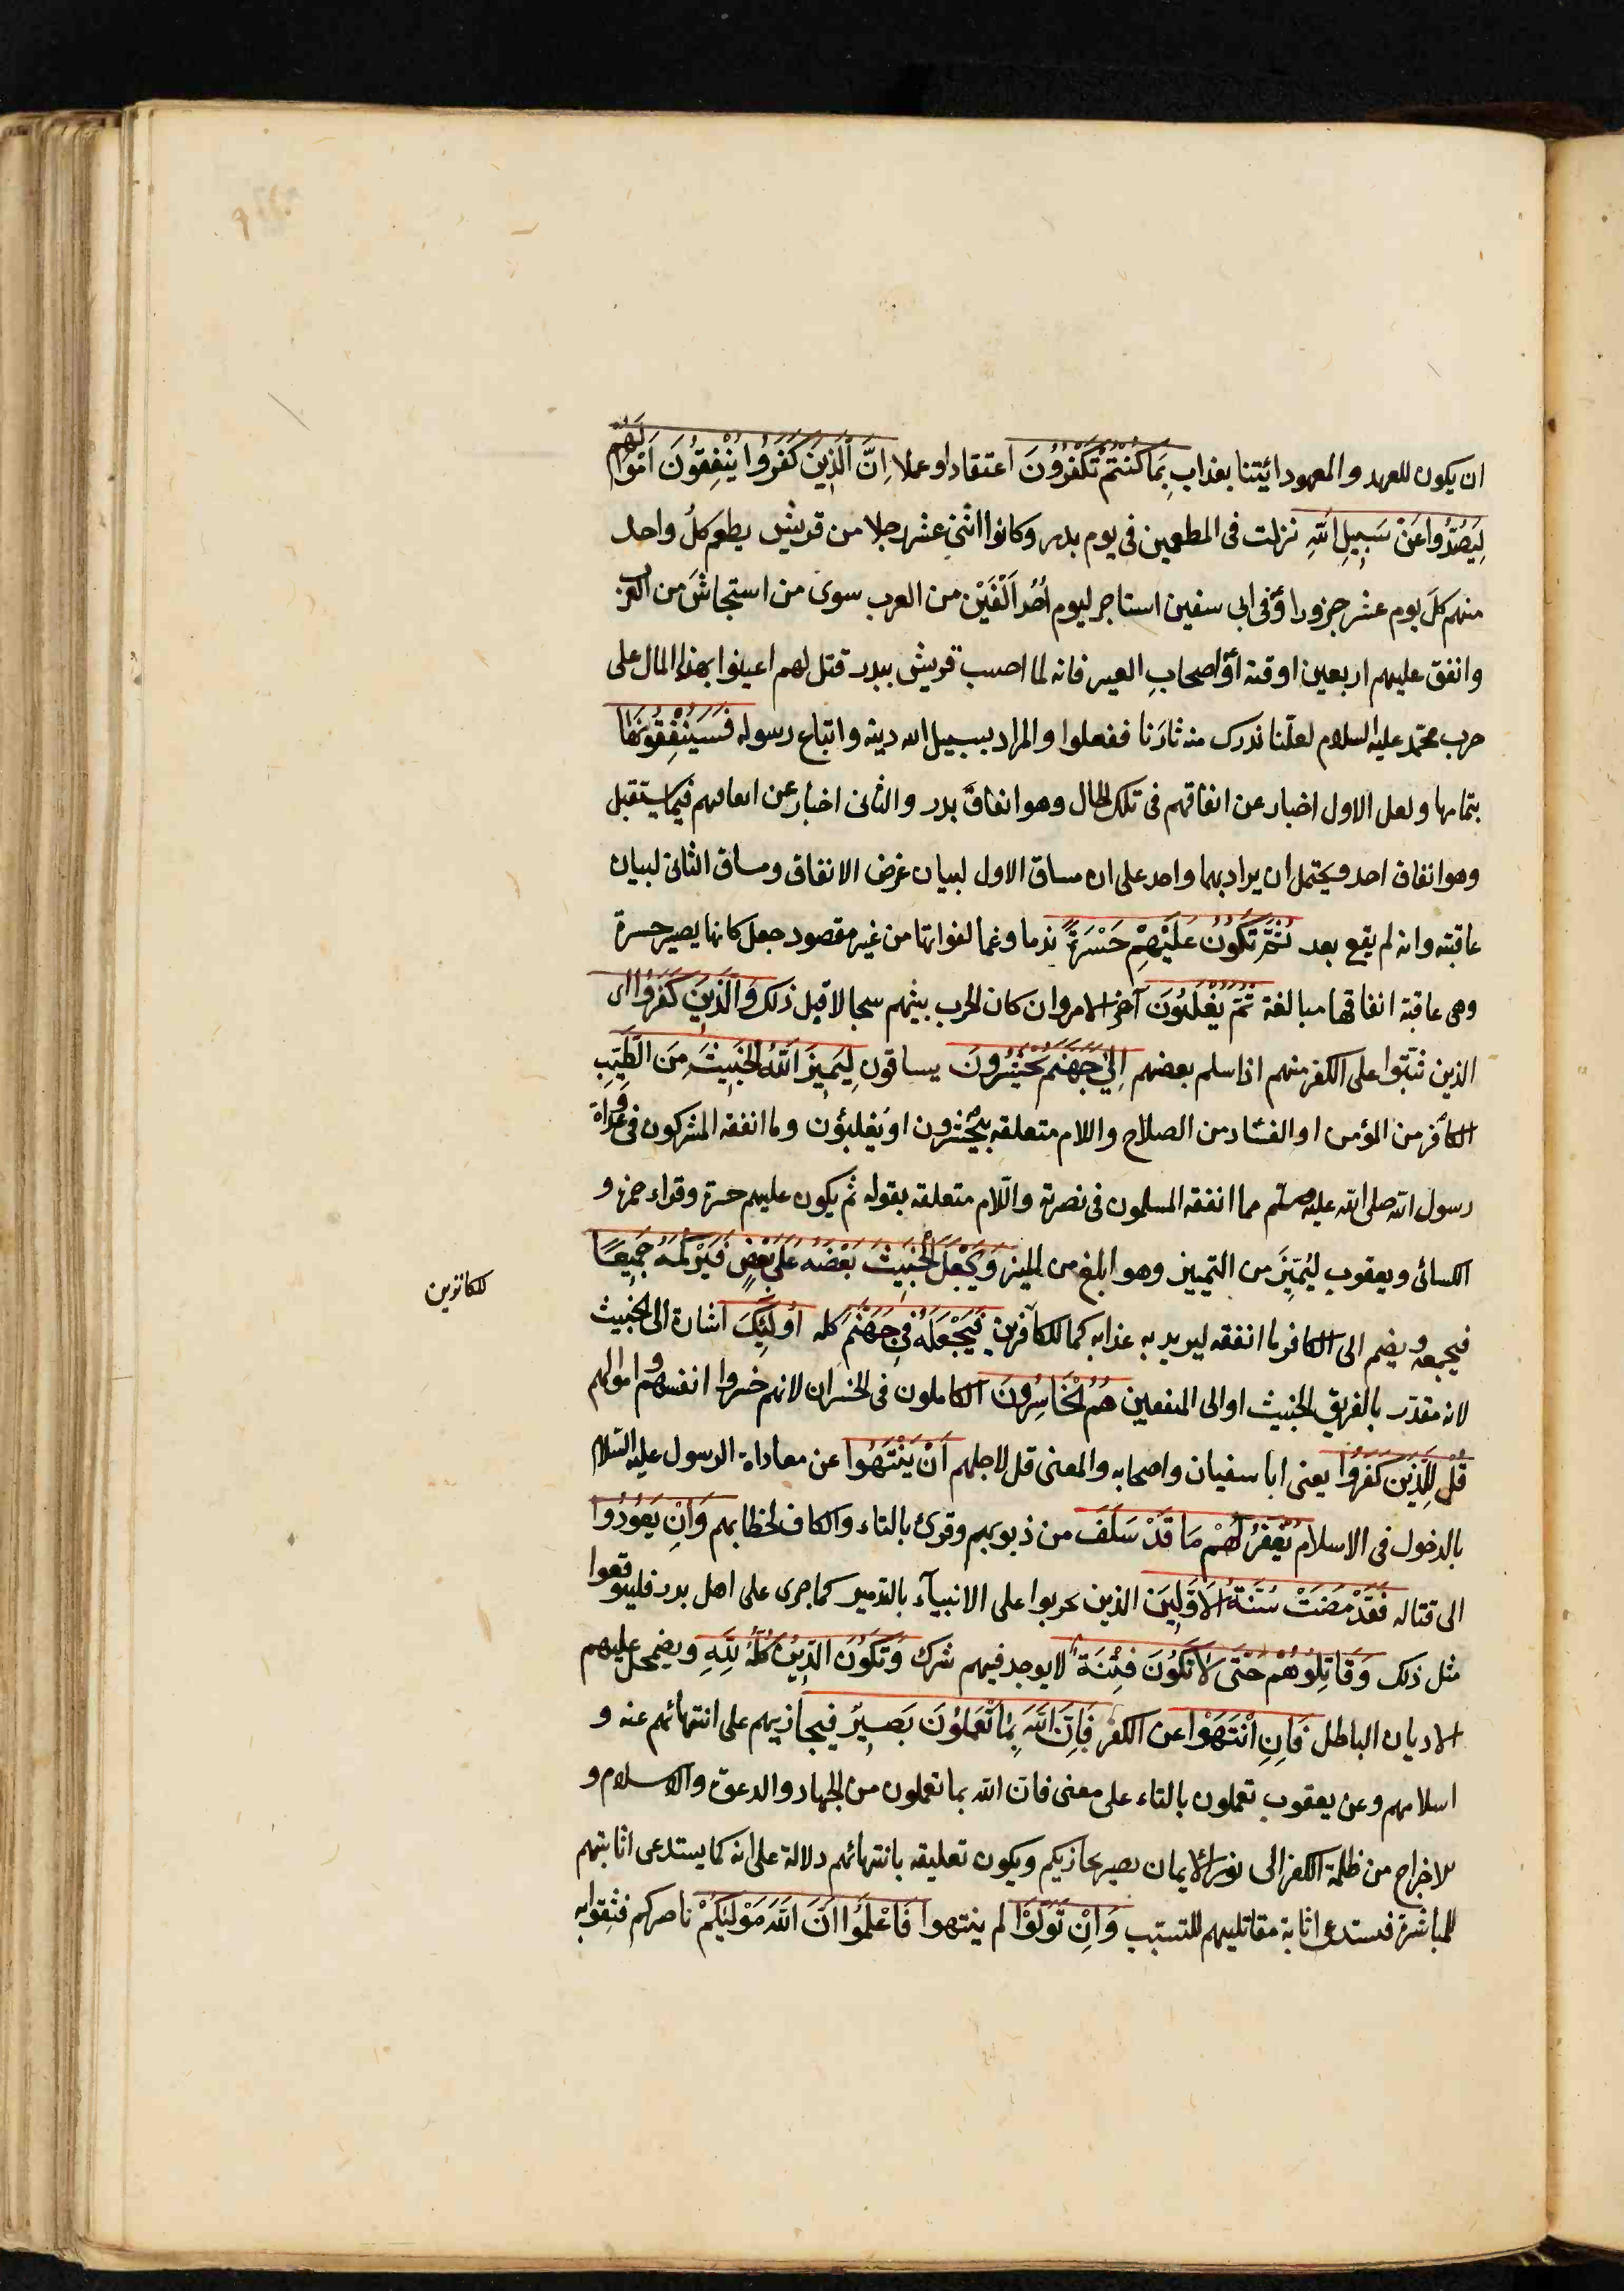 ان يكون للعهد والمعهود ائيتنا بعذاب بِمَا كُنْتُمْ تَكْفُرُونَ اعتقادا وعملا اِنَّ الَّذِينَ كَفَرُوا يُنْفِقُونَ اَمْوَالَهُمْ
لِيَصُدُّوا عَنْ سَبِيلِ اللّٰهِ نزلت فى المطعمين فى يوم بدر وكانوا اثنى عشر رجلا من قريش يطعم كلُ واحد
منهم كلَ يوم عشر جزورا أو فى ابى سفين استاجر ليوم اُحُد اَلْفَيْن من العرب سوى من استجاشَ من العرب
وانفق عليهم اربعين اوقية أو اصحابِ العير فانه لما اصيب قريش ببدر قيل لهم اعينوا بهذا المال على
حرب محمّد عليه السلام لعلّنا ندرك منه ثارَنا ففعلوا والمراد بسبيل الله دينه واتباع رسوله فَسَيُنْفِقُونَهَا
بتمامها ولعل الاول اخبار عن انفاقهم فى تلك الحال وهو انفاقُ بدر والثانى اخبار عن انفاقهم فيما يستقبل
وهو انفاق احد ويَحتمل ان يراد بهما واحد على ان مساق الاول لبيان غرض الانفاق ومساق الثانى لبيان
عاقبته وانه لم يقع بعد ثُمَّ تَكُونُ عَلَيْهِمْ حَسْرَةً ندما وغما لفواتها من غير مقصود جعل كانها يصير حسرة
وهى عاقبة انفاقها مبالغة ثُمَّ يُغْلَبُونَ آخر الامر وان كان الحرب بينهم سجالا قبل ذلك وَالَّذِينَ كَفَرُوا اى
الذين ثبتوا على الكفر منهم اذا سلم بعضهم اِلٰى جَهَنَّمَ يُحْشَرُونَ يساقون لِيَمِيزَ اللّٰهُ الْخَبِيثَ مِنَ الطَّيِّبِ
الكافر من المؤمن او الفساد من الصلاح واللام متعلقه بيُحْشرون او يُغلبُون وما انفقه المشركون فى عداوة
رسول الله صلى الله عليه وسلم مما انفقه المسلمون فى نصرته واللام متعلقه بقوله ثم يكون عليهم حسرة وقراء حمزة و
الكسائى ويعقوب لِيُمَيِّزَ من التمييز وهو ابلغ من الميز وَيَجْعَلَ الْخَبِيثَ بَعْضَهُ عَلٰى بَعْضٍ فَيَرْكُمَهُ جَمِيعًا
فيجمعه ويضم الى الكافر ما انفقه ليريد به عذابه كما للكافرين فَيَجْعَلَهُ فِى جَهَنَّمَ كله اُولٰئِكَ اشارة الى الخبيث
للكانزين
لانه مقدّر بالفريق الخبيث او الى المنفقين هُمُ الْخَاسِرُونَ الكاملون فى الخسران لانهم خسروا انفسهم واموالهم
قُلْ لِلَّذِينَ كَفَرُوا يعنى ابا سفيان واصحابه والمعنى قل لاجلهم اَنْ يَنْتَهُوا عن معاداة الرسول عليه السّلام
بالدخول فى الاسلام يُغْفَرْ لَهُمْ مَا قَدْ سَلَفَ من ذبوبهم وقرئ بالتاء والكاف لخطابهم وَاِنْ يَعُودُوا
الى قتاله فَقَدْ مَضَتْ سُنَّةُ الْاَوَّلِينَ الذين تحربوا على الانبيآء بالتدمير كما جرى على اهل بدر فليتوقعوا
مثل ذلك وَقَاتِلُوهُمْ حَتّٰى لَا تَكُونَ فِتْنَةٌ لا يوجد فيهم شرك وَتَكُونَ الدِّينُ كُلُّهُ لِلّٰهِ ويضمحل عليهم
الاديان الباطل فَاِنِ انْتَهَوْا عن الكفر فَاِنَّ اللّٰهَ بِمَا تَعْمَلُونَ بَصِيرٌ فيجازيهم على انتهائهم عنه و
اسلامهم وعن يعقوب تعملون بالتاء على معنى فان الله بما تعملون من الجهاد والدعوة والاسلام و
للاخراج من ظلمة الكفر الى نور الايمان بصير يجازيكم ويكون تعليقه بانتهائهم دلالة على انه كما يستدعى اثابتهم
للمباشرة فستدعى اثابة مقاتليهم للتسبّب وَاِنْ تَوَلَّوْا لم ينتهوا فَاعْلَمُوا اَنَّ اللّٰهَ مَوْلٰيكُمْ ناصركم فثقوا به